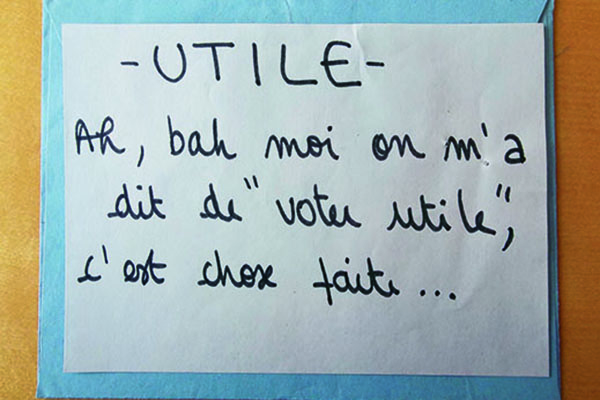 -UTILE-
Ah, bah moi on m'a
dit de "voter utile",
c'est chose faite...